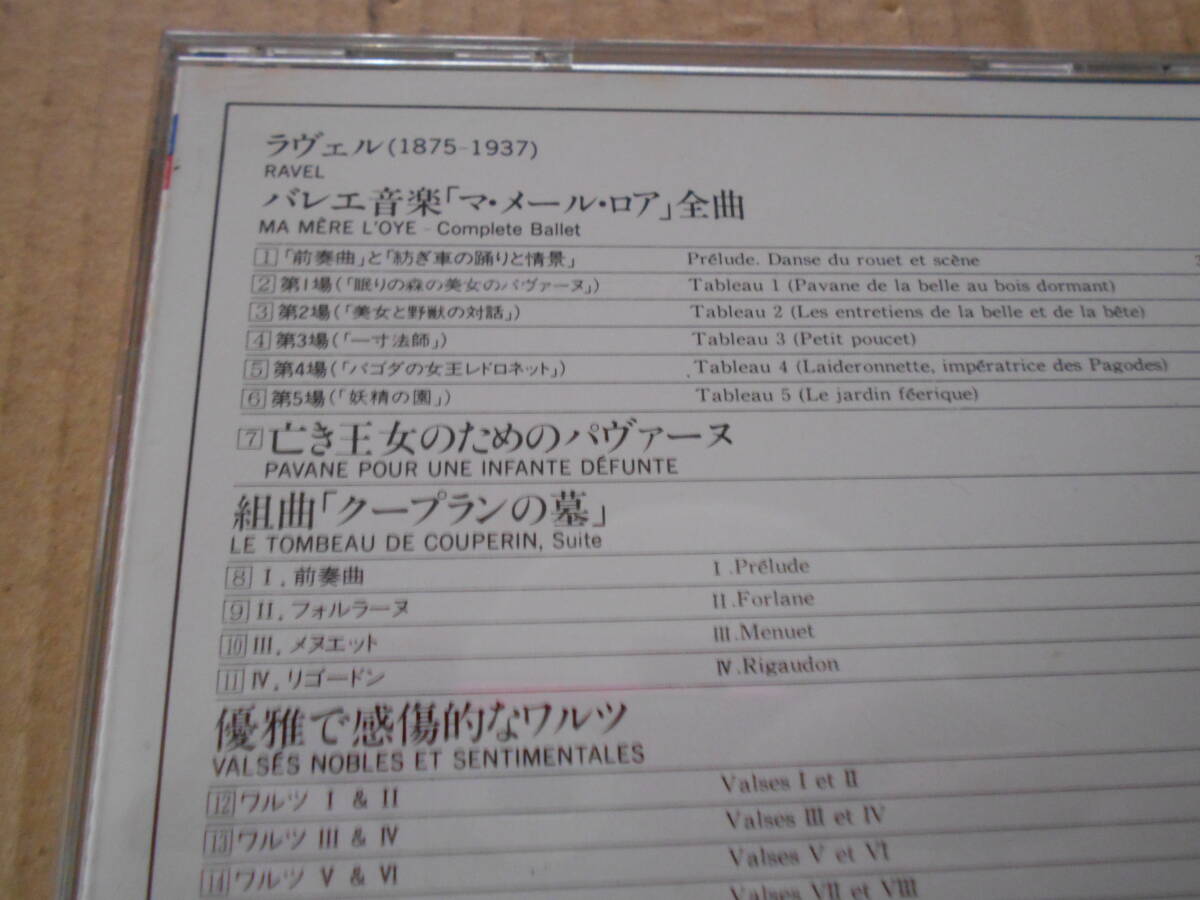 ラヴェル(1875-1937)
RAVEL
バレエ音楽「マ・メール・ロア」全曲
MA MÈRE L'OYE - Complete Ballet
1 「前奏曲」と「紡ぎ車の踊りと情景」 Prélude. Danse du rouet et scène
2 第1場(「眠りの森の美女のパヴァーヌ」) Tableau 1 (Pavane de la belle au bois dormant)
3 第2場(「美女と野獣の対話」) Tableau 2 (Les entretiens de la belle et de la bête)
4 第3場(「一寸法師」) Tableau 3 (Petit poucet)
5 第4場(「パゴダの女王レドロネット」) Tableau 4 (Laideronnette, impératrice des Pagodes)
6 第5場(「妖精の園」) Tableau 5 (Le jardin féerique)
7 亡き王女のためのパヴァーヌ
PAVANE POUR UNE INFANTE DÉFUNTE
組曲「クープランの墓」
LE TOMBEAU DE COUPERIN, Suite
8 I. 前奏曲 I .Prélude
9 II. フォルラーヌ II .Forlane
10 III. メヌエット III .Menuet
11 IV. リゴードン IV .Rigaudon
優雅で感傷的なワルツ
VALSES NOBLES ET SENTIMENTALES
12 ワルツ I & II Valses I et II
13 ワルツ III & IV Valses III et IV
14 ワルツ V & VI Valses V et VI
Valses VII et VIII